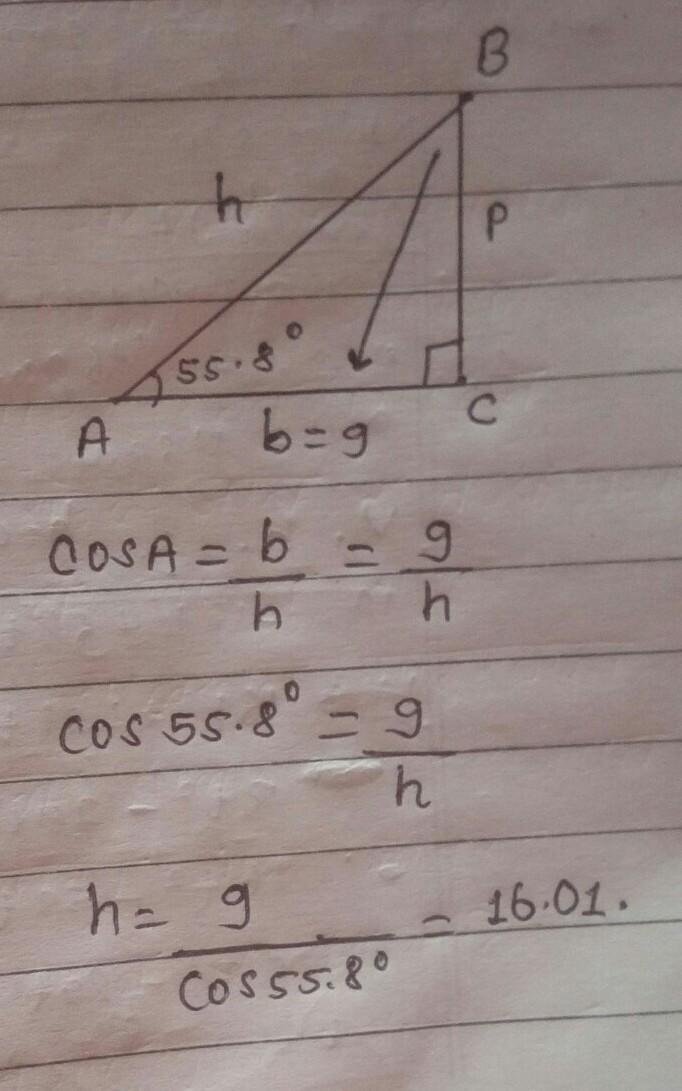 B
h
P
55.8°
A
b=9
C
cosA = b/h = 9/h
cos 55.8° = 9/h
h = 9/cos55.8° = 16.01.